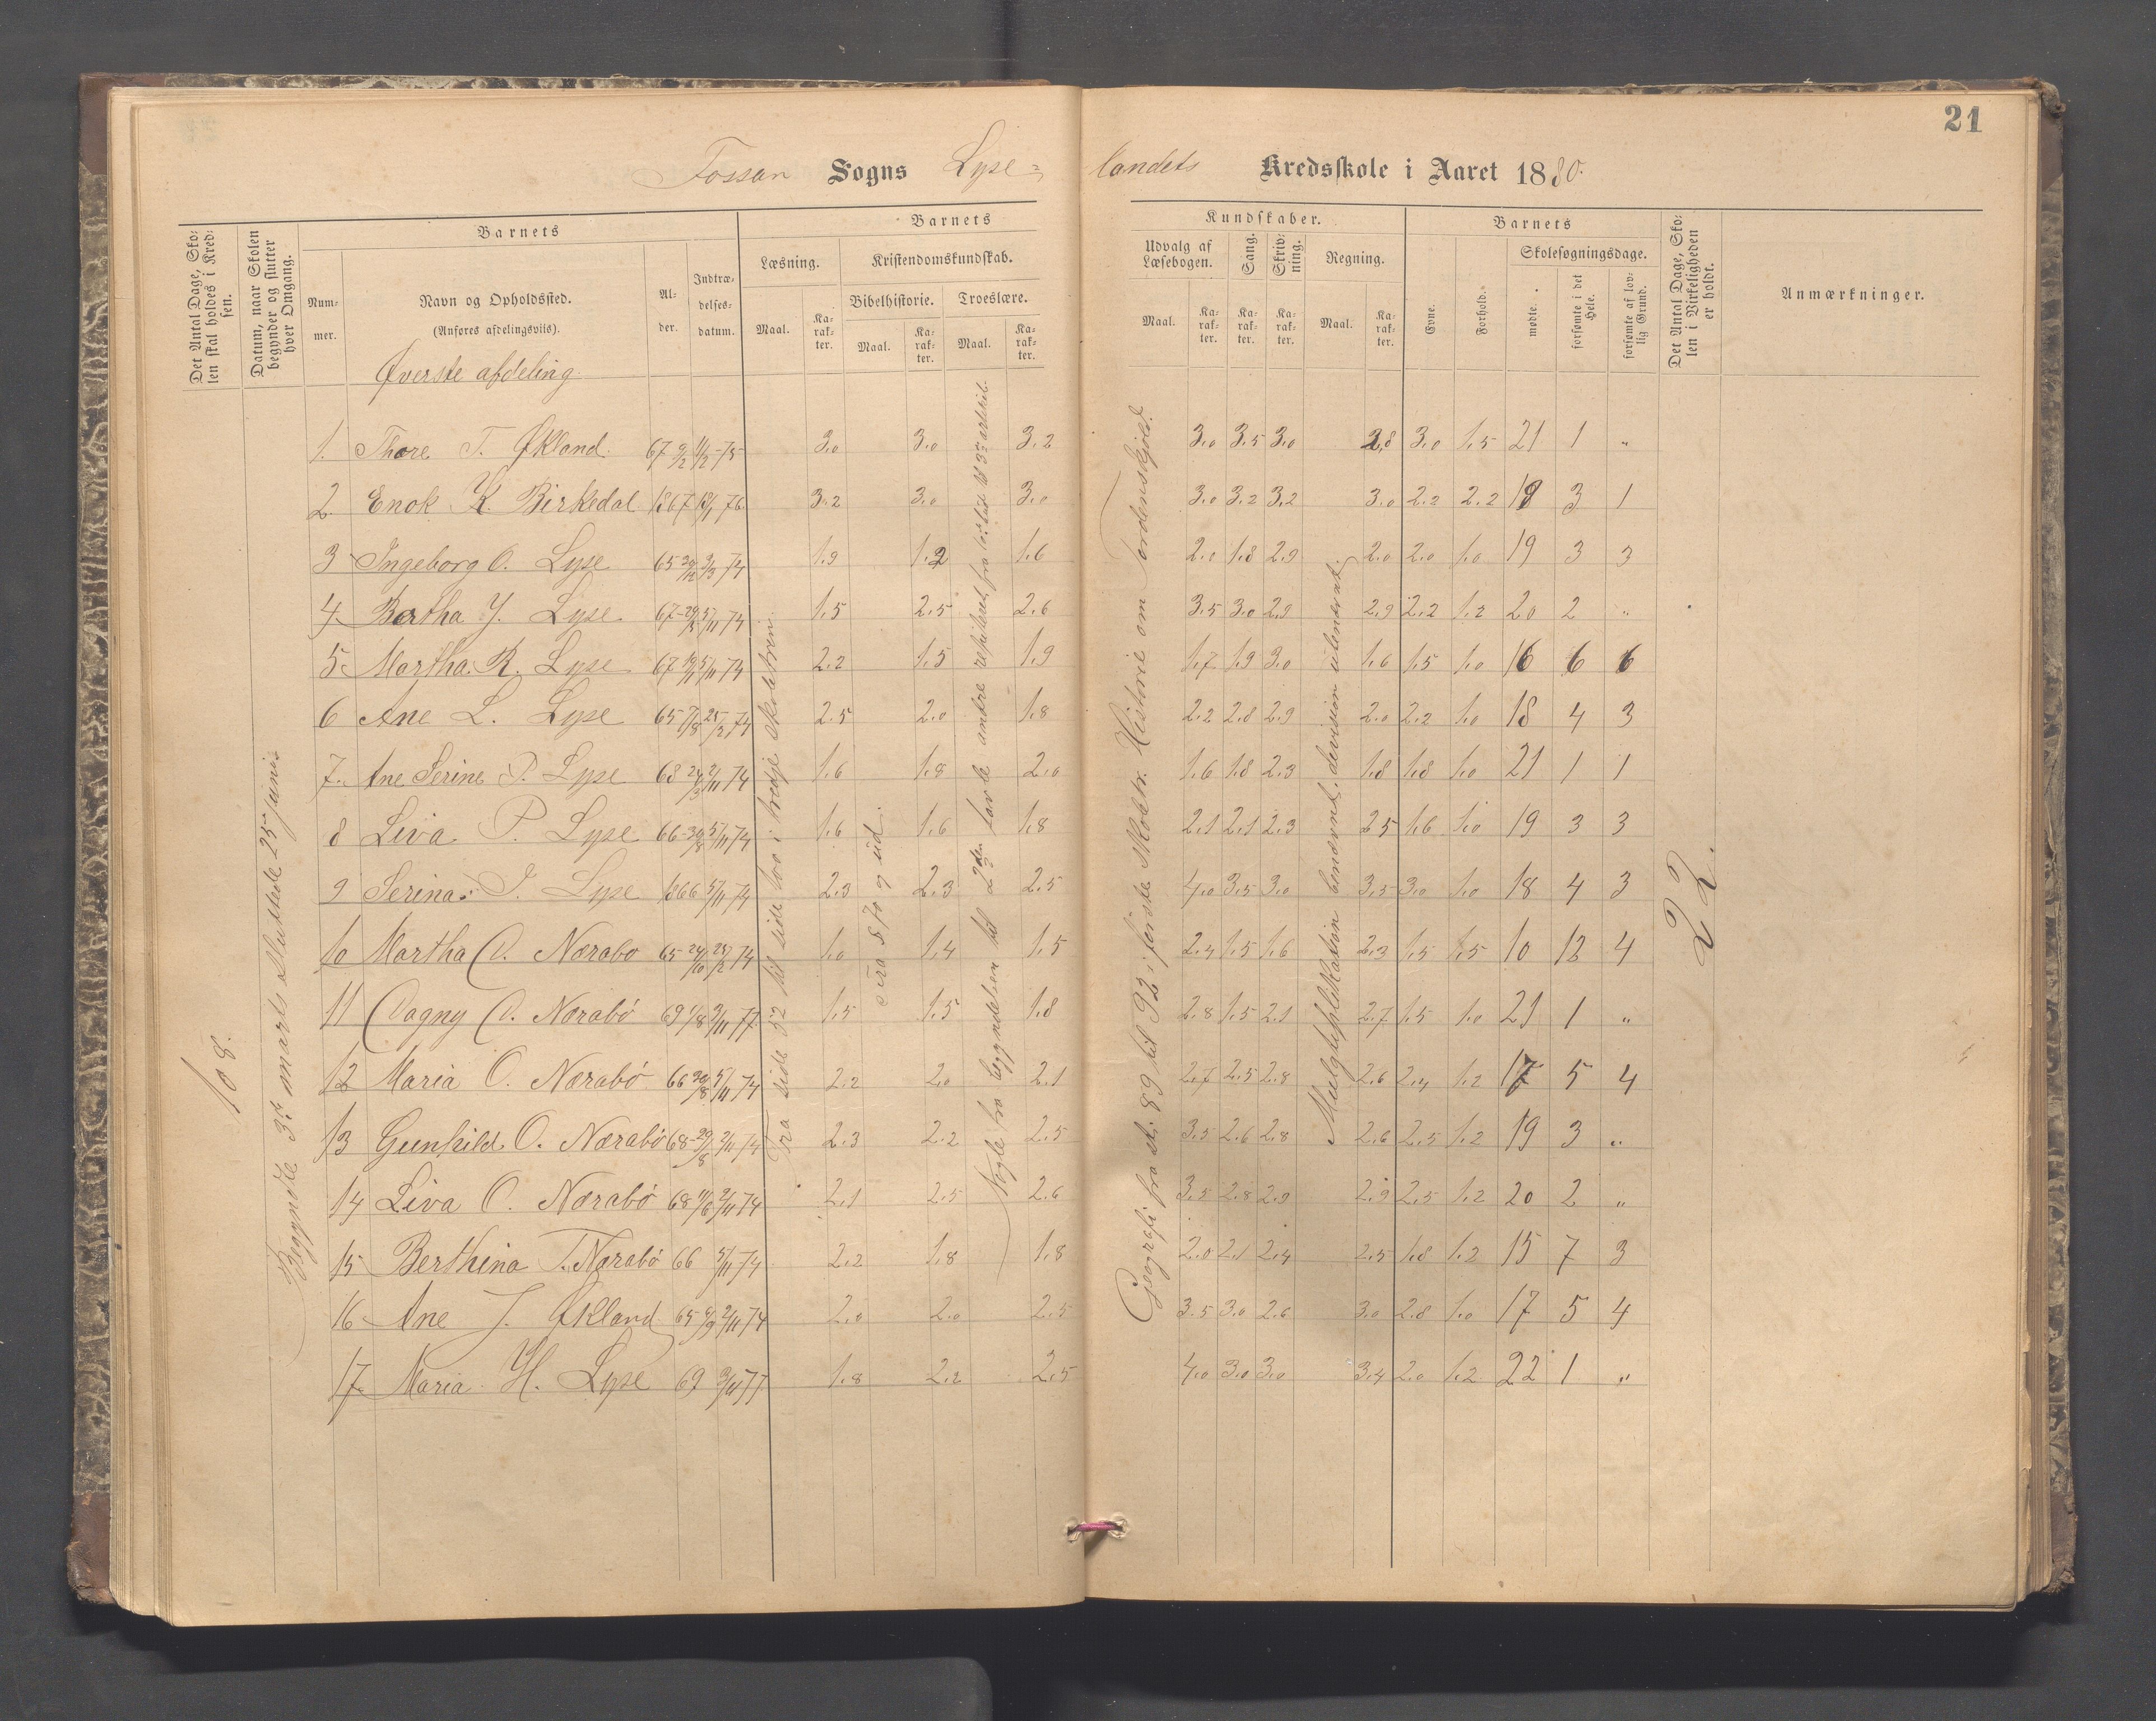 21
Fossan Sogns Lyse= landets Kredsskole i Aaret 1880.
Det Antal Dage, Sko-
len skal holdes i Kred-
sen.
Datum, naar Skolen
begynder og slutter
hver Omgang.
Barnets
Num-
mer.
Navn og Opholdssted.
(Anføres afdelingsviis).
Al-
der.
Indtræ-
delses-
datum.
Barnets
Læsning.
Maal.
Ka-
rak-
ter.
Kristendomskundskab.
Bibelhistorie.
Maal.
Ka-
rak-
ter.
Troeslære.
Maal.
Ka-
rak-
ter.
Kundskaber.
Udvalg af
Læsebogen.
Maal.
Ka-
rak-
ter.
Sang.
Ka-
rak-
ter.
Skriv-
ning.
Ka-
rak-
ter.
Regning.
Maal.
Ka-
rak-
ter.
Barnets
Evne.
Forhold.
Skolesøgningsdage.
mødte.
forsømte i det
Hele.
forsømte af lov-
lig Grund.
Det Antal Dage, Sko-
len i Virkeligheden
er holdt.
Anmærkninger.
Øverste afdeling
108.
Begyndte 3die marts sluttede 25 junis
Fra side 52 til side 100 i tredje skoletrin
Fra § 70 og ud.
Nogle fra begyndelsen til 2den part de andre repeteret fra til 3die artikel.
Geografi fra st. 89 til 92 i første Skoletr. Historie om Tordenskjold.
Multiplikation benævnt. devision ubenævnt.
22.
1. Thore T. Økland 67 9/2 11/2-75 3.0 3.0 3.2 3.0 3.5 3.0 2.8 3.0 1.5 21 1 "
2 Enok K. Birkedal 1867 18/1 76 3.2 3.0 3.0 3.0 3.2 3.2 3.0 2.2 2.2 18 3 1
3 Ingeborg O. Lyse 65 29/12 3/3 74 1.9 1.2 1.6 2.0 1.8 2.9 2.0 2.0 1.0 19 3 3
4 Bertha J. Lyse 67 29/5 5/11 74 1.5 2.5 2.6 3.5 3.0 2.9 2.9 2.2 1.2 20 2 "
5 Martha R. Lyse 67 19/1 5/11 74 2.2 1.5 1.9 1.7 1.9 3.0 1.6 1.5 1.0 16 6 6
6 Ane L. Lyse 65 7/8 25/2 74 2.5 2.0 1.8 2.2 2.8 2.9 2.0 2.2 1.0 18 4 3
7 Ane Serine P. Lyse 68 24/3 2/11 74 1.6 1.8 2.0 1.6 1.8 2.3 1.8 1.8 1.0 21 1 1
8 Liva P. Lyse 66 30/8 5/11 74 1.6 1.6 1.8 2.1 2.1 2.3 2.5 1.6 1.0 19 3 3
9 Serina J. Lyse 1866 5/11 74 2.3 2.3 2.5 4.0 3.5 3.0 3.5 3.0 1.0 18 4 3
10 Martha O. Nærabø 65 24/10 25/2 74 1.0 1.4 1.5 2.4 1.5 1.6 2.3 1.5 1.5 10 12 4
11 Dagny O. Nærabø 69 1/8 3/11 77 1.5 1.5 1.8 2.8 1.5 2.1 2.7 1.5 1.0 21 1 "
12 Maria O. Nærabø 66 20/8 5/11 74 2.2 2.0 2.1 2.7 2.5 2.8 2.6 2.4 1.2 17 5 4
13 Gunhild O. Nærabø 68 29/8 2/11 74 2.3 2.2 2.5 3.5 2.6 2.8 2.6 2.5 1.2 19 3 "
14 Liva O. Nærabø 68 11/6 2/11 74 2.1 2.5 2.6 3.5 2.8 2.9 2.9 2.5 1.2 20 2 "
15 Berthina T. Nærabø 66 5/11 74 2.2 1.8 1.8 2.0 2.1 2.4 2.5 1.8 1.2 15 7 3
16 Ane J. Økland 65 4/9 2/11 74 2.0 2.0 2.5 3.5 3.0 2.6 3.0 2.8 1.0 17 5 4
17 Maria H. Lyse 69 3/11 77 1.8 2.2 2.5 4.0 3.0 3.0 3.4 2.0 1.2 22 1 "